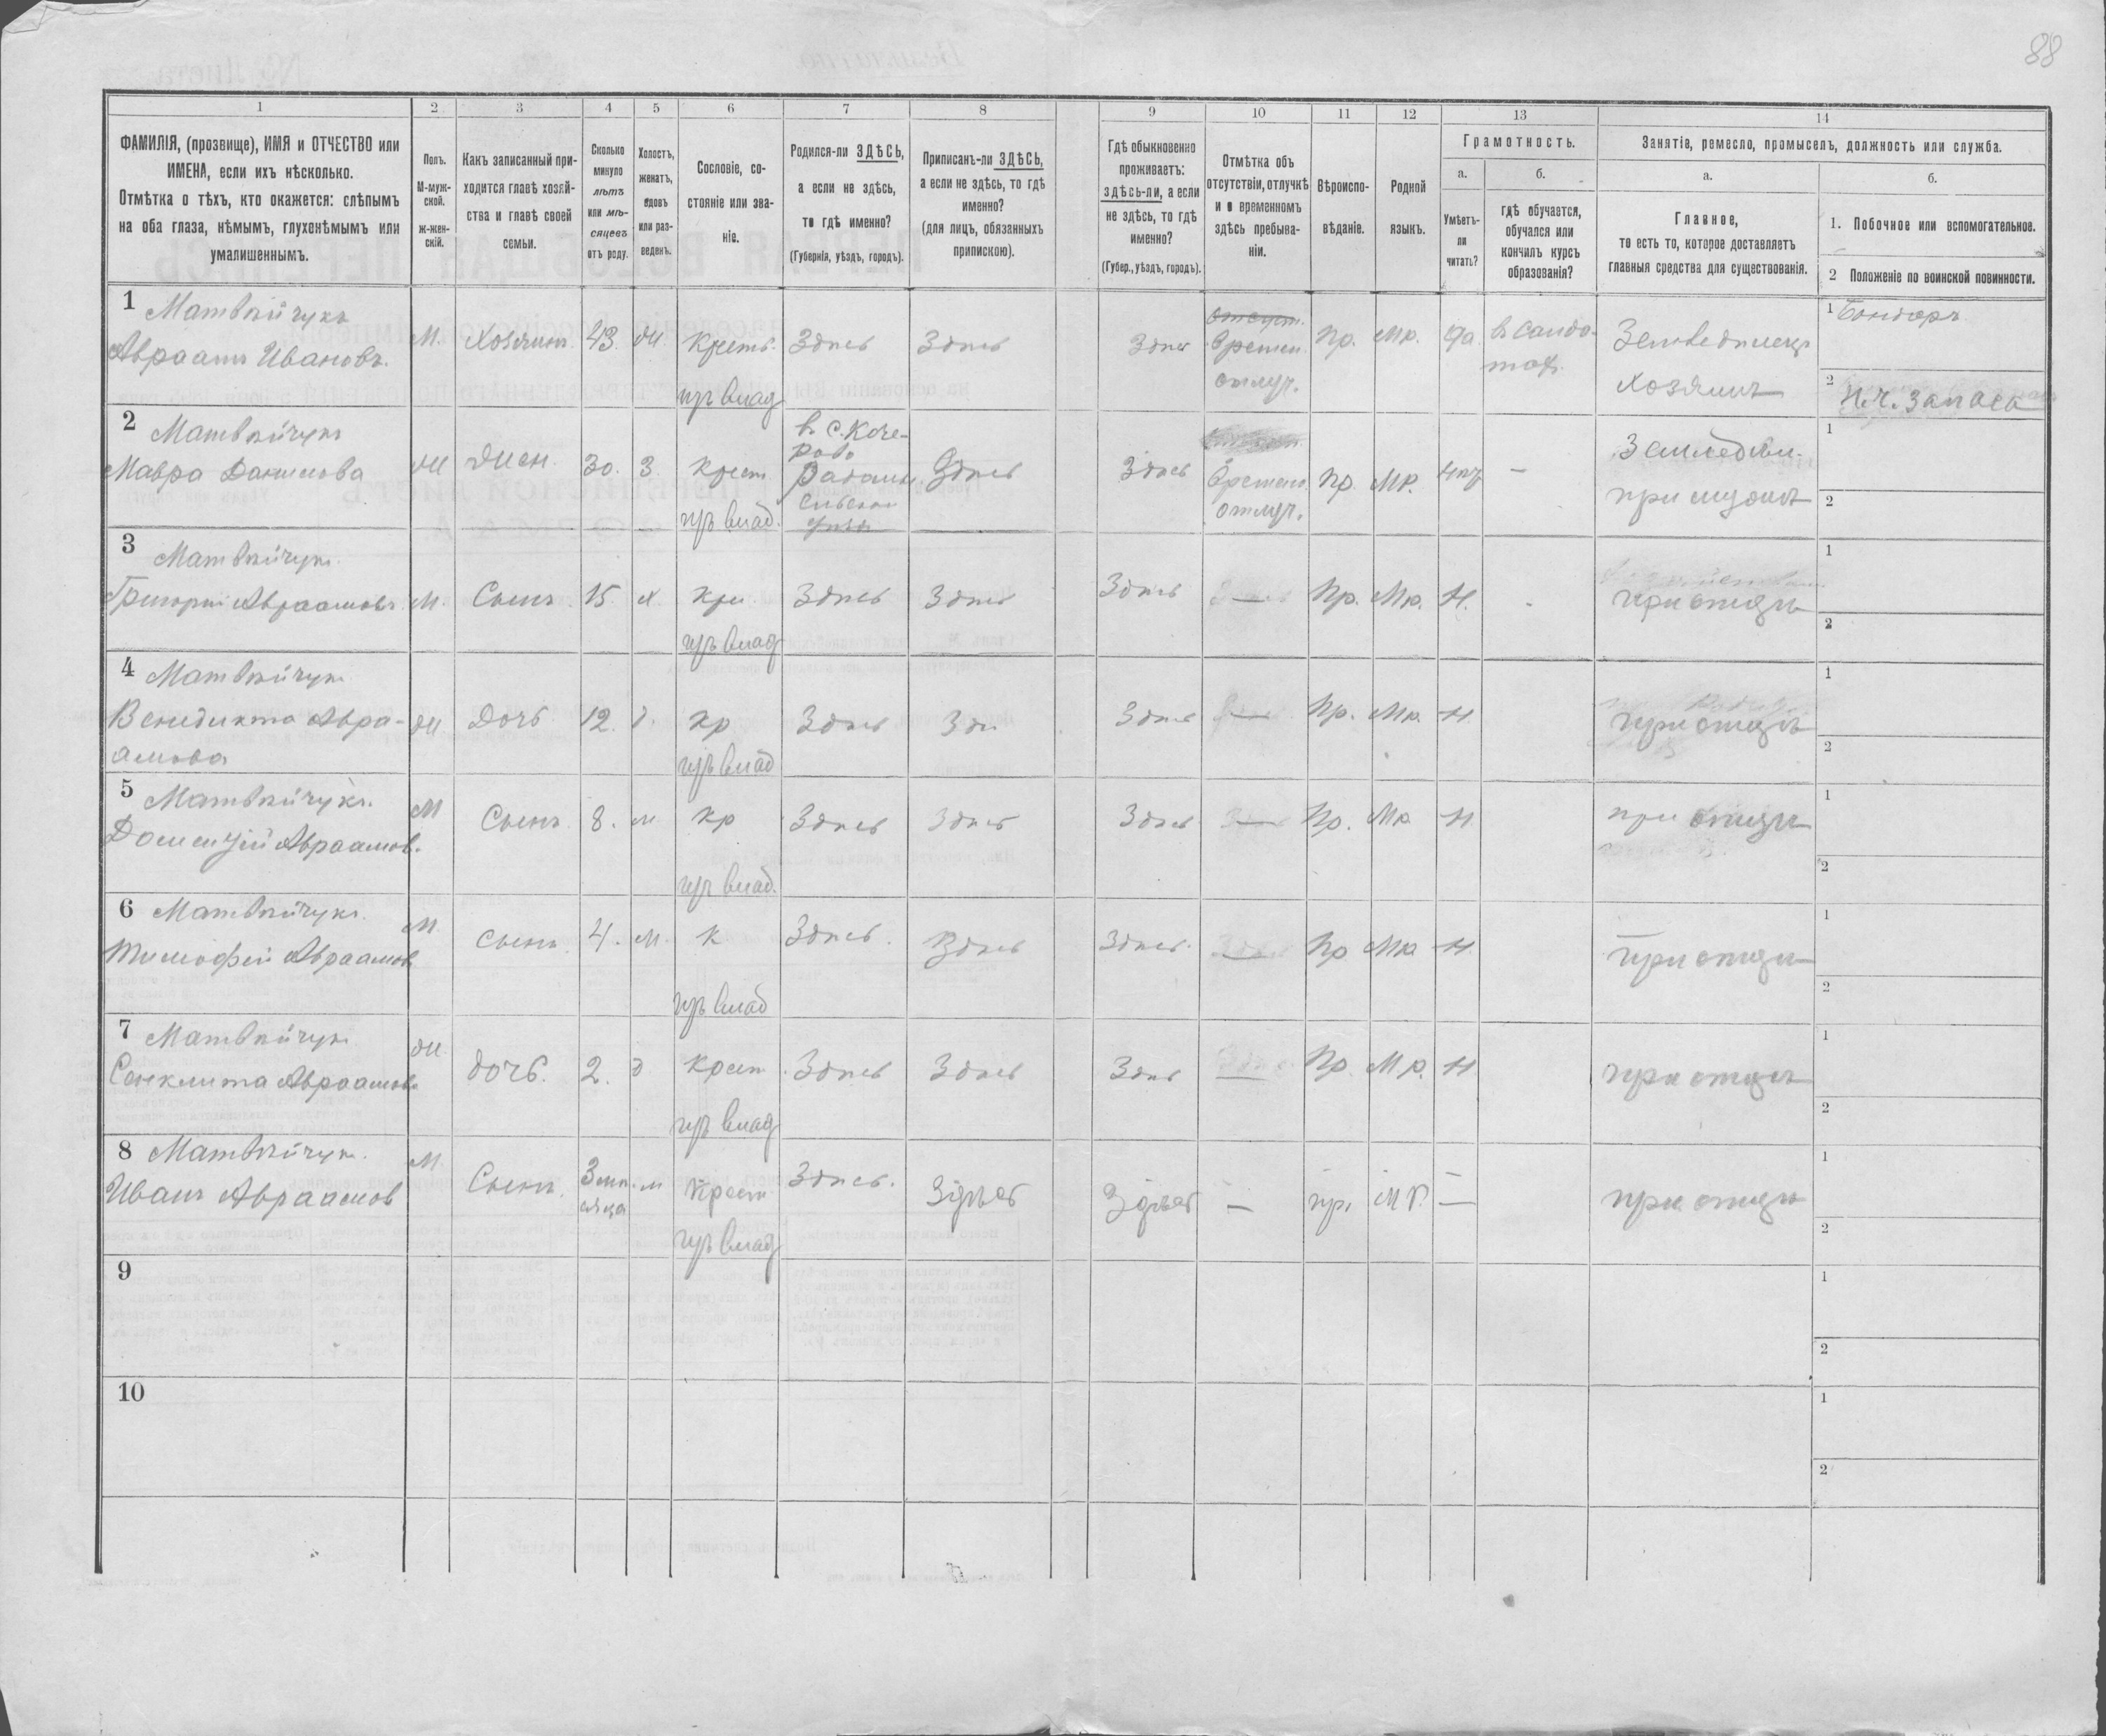 88
1
2
3
4
5
6
7
8
9
10
11
12
13
14
ФАМИЛІЯ, (прозвище), ИМЯ и ОТЧЕСТВО или
ИМЕНА, если ихъ нѣсколько.
Отмѣтка о тѣхъ, кто окажется: слѣпымъ
на оба глаза, нѣмымъ, глухонѣмымъ или
умалишеннымъ.
Полъ.
М-муж-
ской.
ж-жен-
скій.
Какъ записанный при-
ходится главѣ хозяй-
ства и главѣ своей
семьи.
Сколько
минуло
лѣтъ
или мѣ-
сяцевъ
отъ роду.
Холостъ,
женатъ,
вдовъ
или раз-
веденъ.
Сословіе, со-
стояніе или зва-
ніе.
Родился-ли ЗДѢСЬ,
а если не здѣсь,
то гдѣ именно?
(Губернія, уѣздъ, городъ).
Приписанъ-ли ЗДѢСЬ,
а если не здѣсь, то гдѣ
именно?
(для лицъ, обязанныхъ
припискою).
Гдѣ обыкновенно
проживаетъ:
здѣсь-ли, а если
не здѣсь, то гдѣ
именно?
(Губер., уѣздъ, городъ).
Отмѣтка объ
отсутствіи, отлучкѣ
и о временномъ
здѣсь пребыва-
ніи.
Вѣроиспо-
вѣданіе.
Родной
языкъ.
Грамотность.
а.
Умѣетъ-
ли
читать?
б.
гдѣ обучается,
обучался или
кончилъ курсъ
образованія?
Занятіе, ремесло, промыселъ, должность или служба.
а.
Главное,
то есть то, которое доставляетъ
главныя средства для существованія.
б.
1. Побочное или вспомогательное.
2 Положеніе по воинской повинности.
1 Матвѣйчукъ
Авраамъ Ивановъ.
М. Хозяинъ 43. Ж Крест. Здѣсь Здѣсь Здѣсь
изъ влад
отсут.
Времен.
отлуч.
Пр. Мр. да
Хозяинъ
1 Бондарь
2 Н.ч. запаса
2 Матвѣйчукъ
Мавра Данилова
Ж Жен. 30. З. Крест Здѣсь Здѣсь
изъ влад.
в. С. Коче-
рово
Времен.
отлуч.
Пр. Мр. нѣт —
при мужѣ
1
2
3 Матвѣйчук.
Григорій Авраамовъ
М. Сынъ 15. Х. Кре. Здѣсь Здѣсь Здѣсь — Пр. Мр. Н.
изъ влад
при отцѣ
1
2
4 Матвѣйчук
Венедикта Авра-
амова
Ж Дочь 12. д. Кр Здѣсь Здѣ. Здѣсь — Пр. Мр. Н
изъ влад
при отцѣ
1
2
5 Матвѣйчукъ.
Дометій Авраамов.
М Сынъ 8. м Кр Здѣсь Здѣсь Здѣсь — Пр. Мр Н
изъ влад.
при отцѣ
1
2
6 Матвѣйчукъ.
Тимофей Авраамов
М Сынъ. 4. М. К Здѣсь. Здѣсь Здѣсь. — Пр Мр Н
изъ влад
При отцѣ
1
2
7 Матвѣйчук
Сенклита Авраамова
Ж. Дочь. 2. д Крест Здѣсь Здѣсь Здѣсь — Пр. Мр. Н
изъ влад
при отцѣ
1
2
8 Матвѣйчук.
Иванъ Авраамов
М. Сынъ. 3 мѣ-
сяца
м Крест Здѣсь. Здѣсь Здѣсь — пр. М Р. —
изъ влад
при отцѣ
1
2
9
1
2
10
1
2